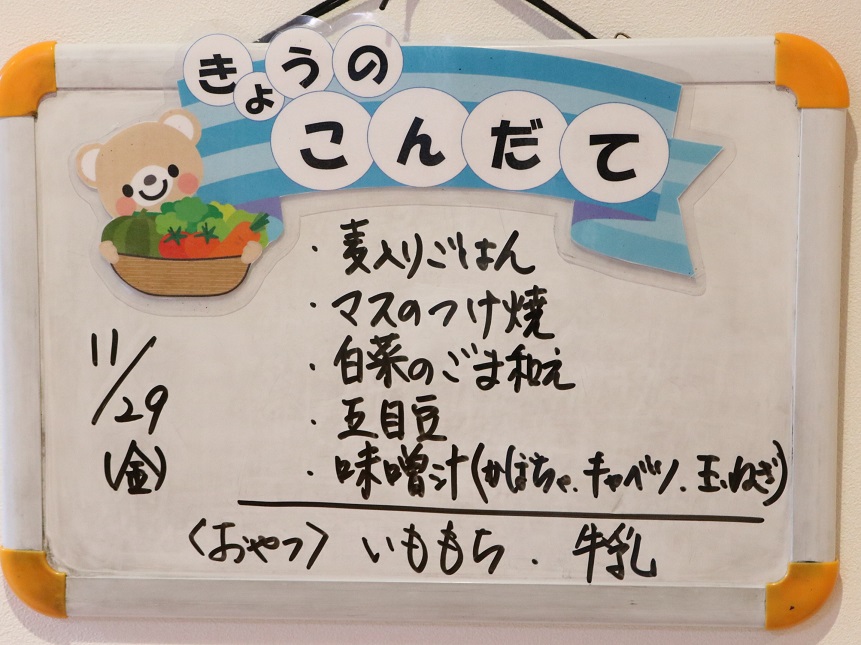 きょうの
こんだて
・麦入りごはん
・マスのつけ焼
・白菜のごま和え
・五目豆
・味噌汁(かぼちゃ、キャベツ、玉ねぎ)
11/29
(金)
〈おやつ〉いももち．牛乳